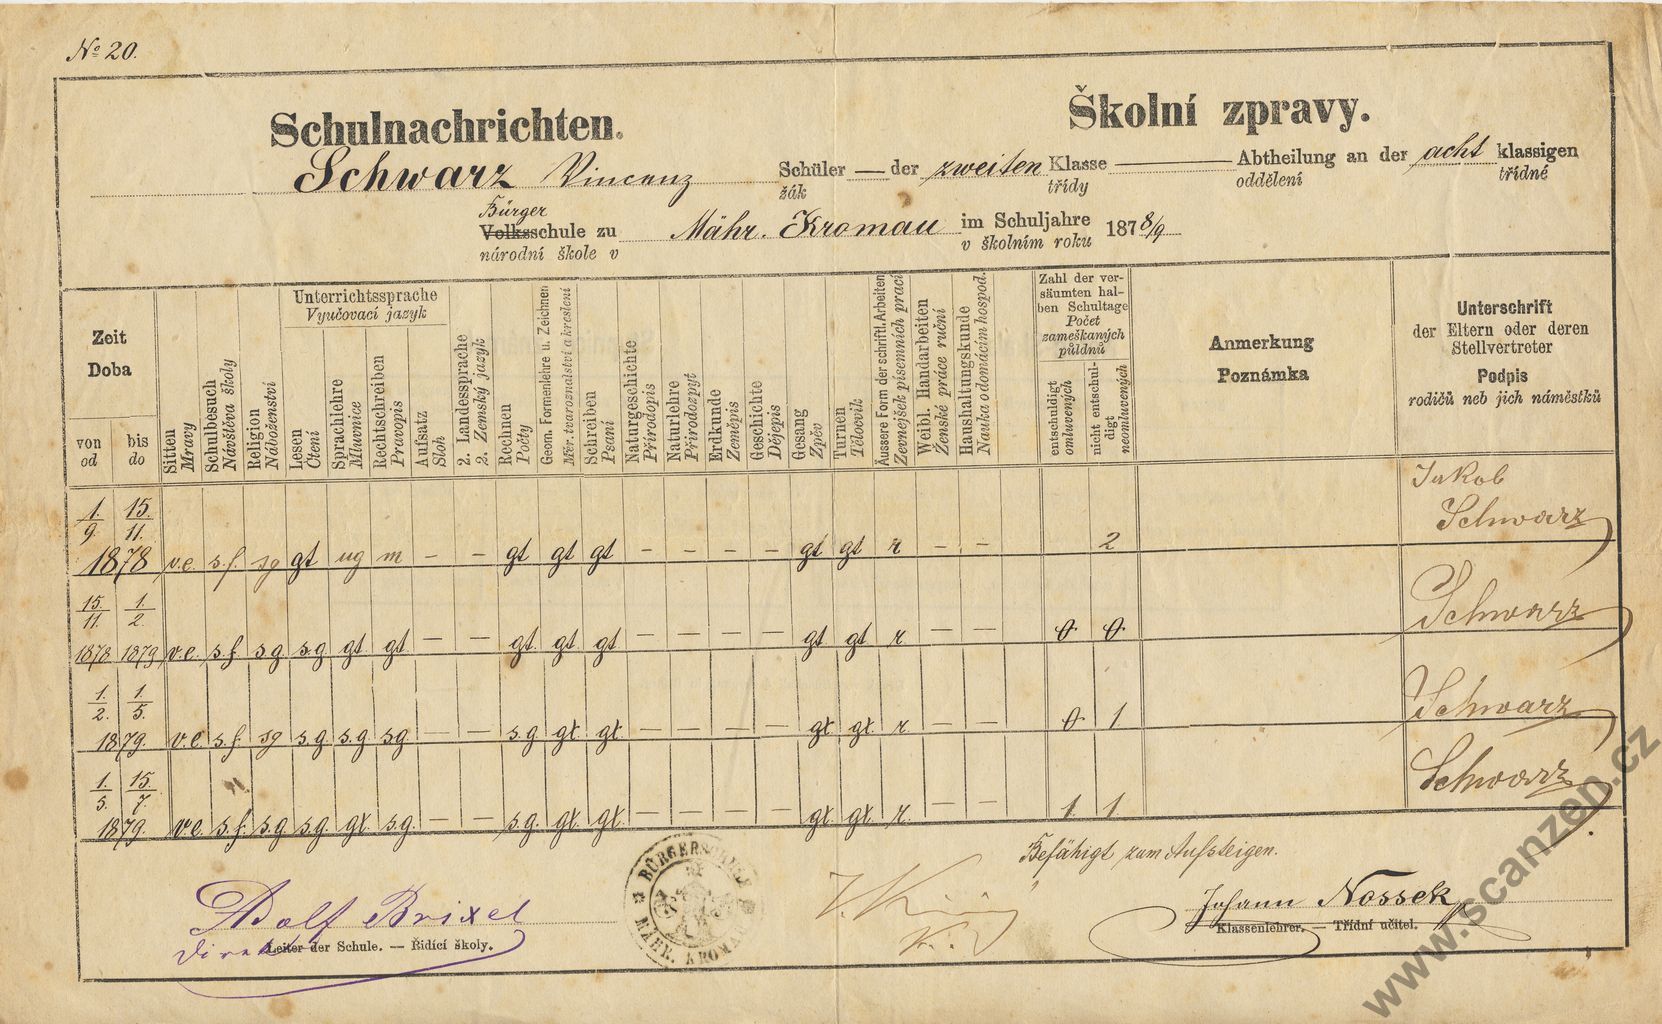 No 20.
Schulnachrichten. Školní zpravy.
Schwarz Vincenz Schüler — der zweiten Klasse — Abtheilung an der acht klassigen
žák třídy oddělení třídné
Bürger
Volksschule zu Mähr. Kromau im Schuljahre 1878/9
národní škole v v školním roku
Zeit
Doba
von
od
bis
do
Sitten
Mravy
Schulbesuch
Návštěva školy
Religion
Náboženství
Unterrichtssprache
Vyučovací jazyk
Lesen
Čtení
Sprachlehre
Mluvnice
Rechtschreiben
Pravopis
Aufsatz
Sloh
2. Landessprache
2. Zemský jazyk
Rechnen
Počty
Geom. Formenlehre u. Zeichnen
Měr. tvaroznalství a kreslení
Schreiben
Psaní
Naturgeschichte
Přírodopis
Naturlehre
Přírodozpyt
Erdkunde
Zeměpis
Geschichte
Dějepis
Gesang
Zpěv
Turnen
Tělocvik
Äussere Form der schriftl. Arbeiten
Zevnějšek písemních prací
Weibl. Handarbeiten
Ženské práce ruční
Haushaltungskunde
Nauka o domácím hospod.
Zahl der ver-
säumten hal-
ben Schultage
Počet
zameškaných
půldnů
entschuldigt
omluvených
nicht entschul-
digt
neomluvených
Anmerkung
Poznámka
Unterschrift
der Eltern oder deren
Stellvertreter
Podpis
rodičů neb jich náměstků
1./9. 15./11. 1878 v.e. s.f. sg gt ug m — — gt gt gt — — — — gt gt r — — 2 Jakob Schwarz
15./11. 1./2. 1878 1879 v.e. s.f. sg s.g gt gt — — gt. gt gt — — — — gt gt r — — 0 0 Schwarz
1./2. 1./5. 1879. v.e. s.f. sg s.g s.g sg — — s.g gt gt. — — — — gt gt. r — — 0 1 Schwarz
1./5. 15./7. 1879. v.e. s.f. s.g s.g. gt. s.g. — — s.g. gt. gt. — — — — gt. gt. r. — — 1 1 Schwarz
Befähigt zum Aufsteigen.
BÜRGERSCHULE MÄHR. KROMAU
Adolf Brixel
Johann Nossek
Leiter der Schule. — Řidící školy.
Klassenlehrer. — Třídní učitel.
www.scanzen.cz